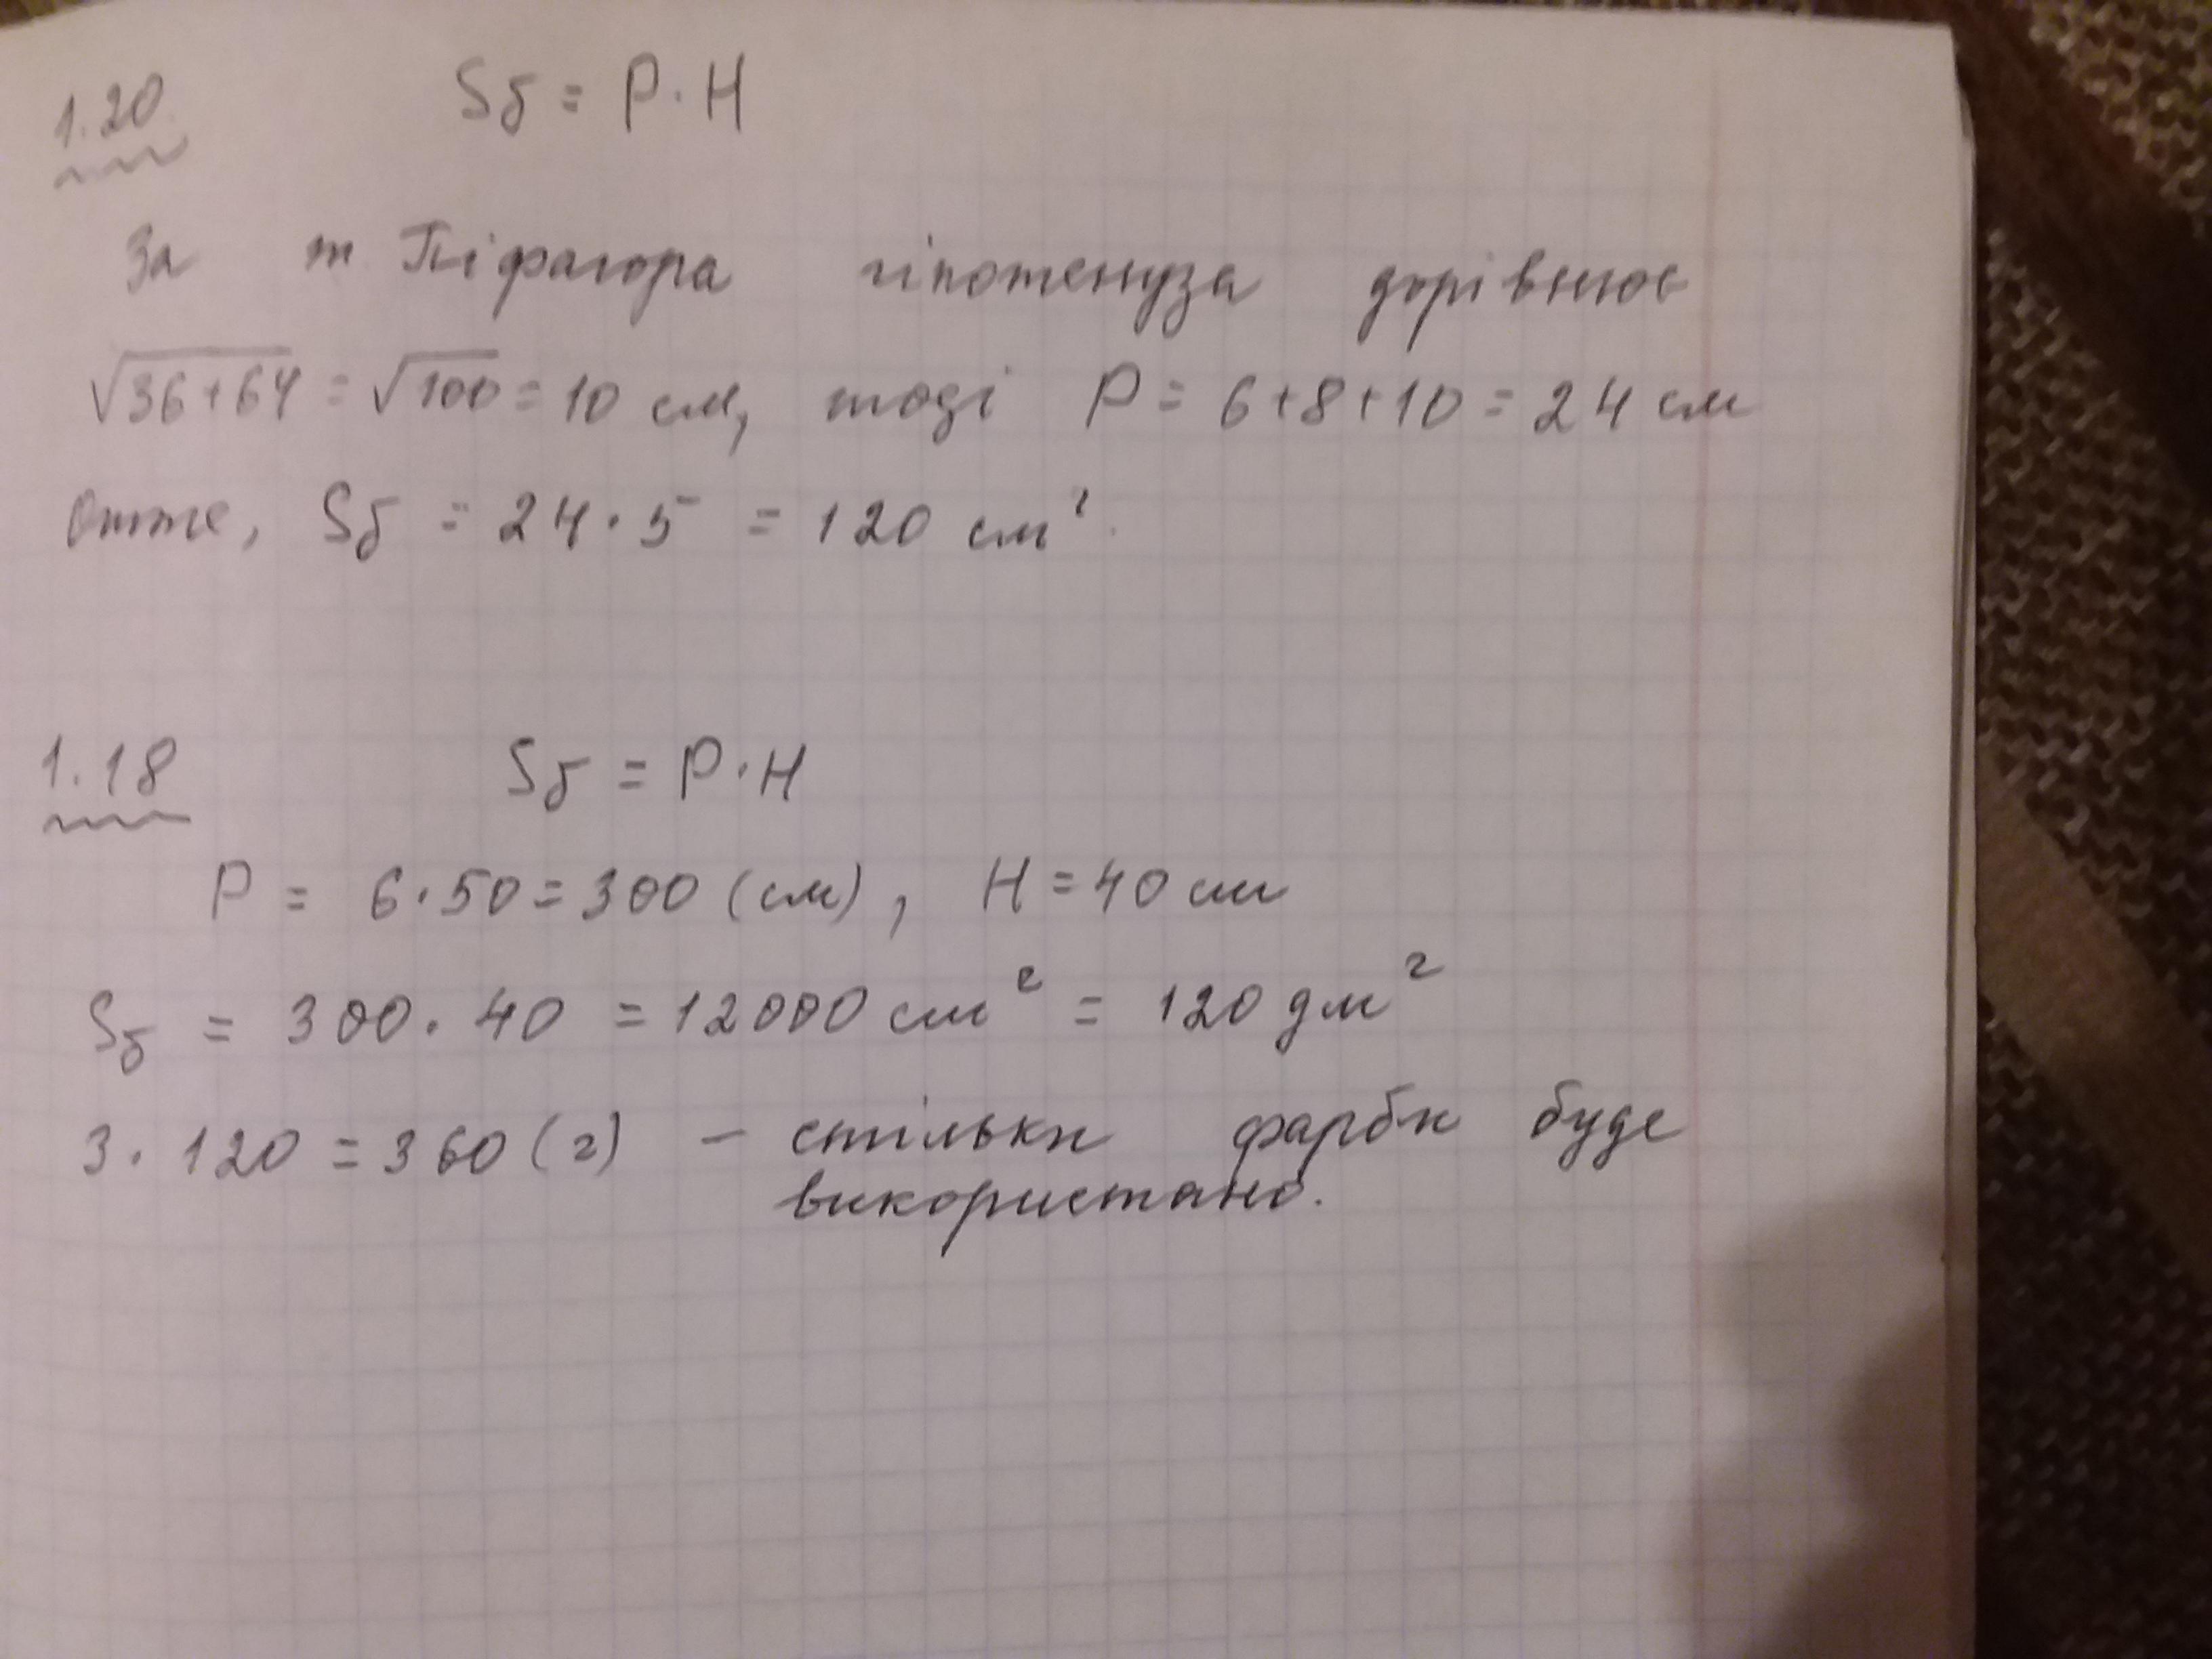 1.20
Sб = P·H
За т. Піфагора гіпотенуза дорівнює
√36+64 = √100 = 10 см, тоді P = 6+8+10 = 24 см
Отже, Sб = 24·5 = 120 см².
1.18
Sб = P·H
P = 6·50 = 300 (см), H = 40 см
Sб = 300·40 = 12000 см² = 120 дм²
3·120 = 360 (г) – стільки фарби буде
використано.